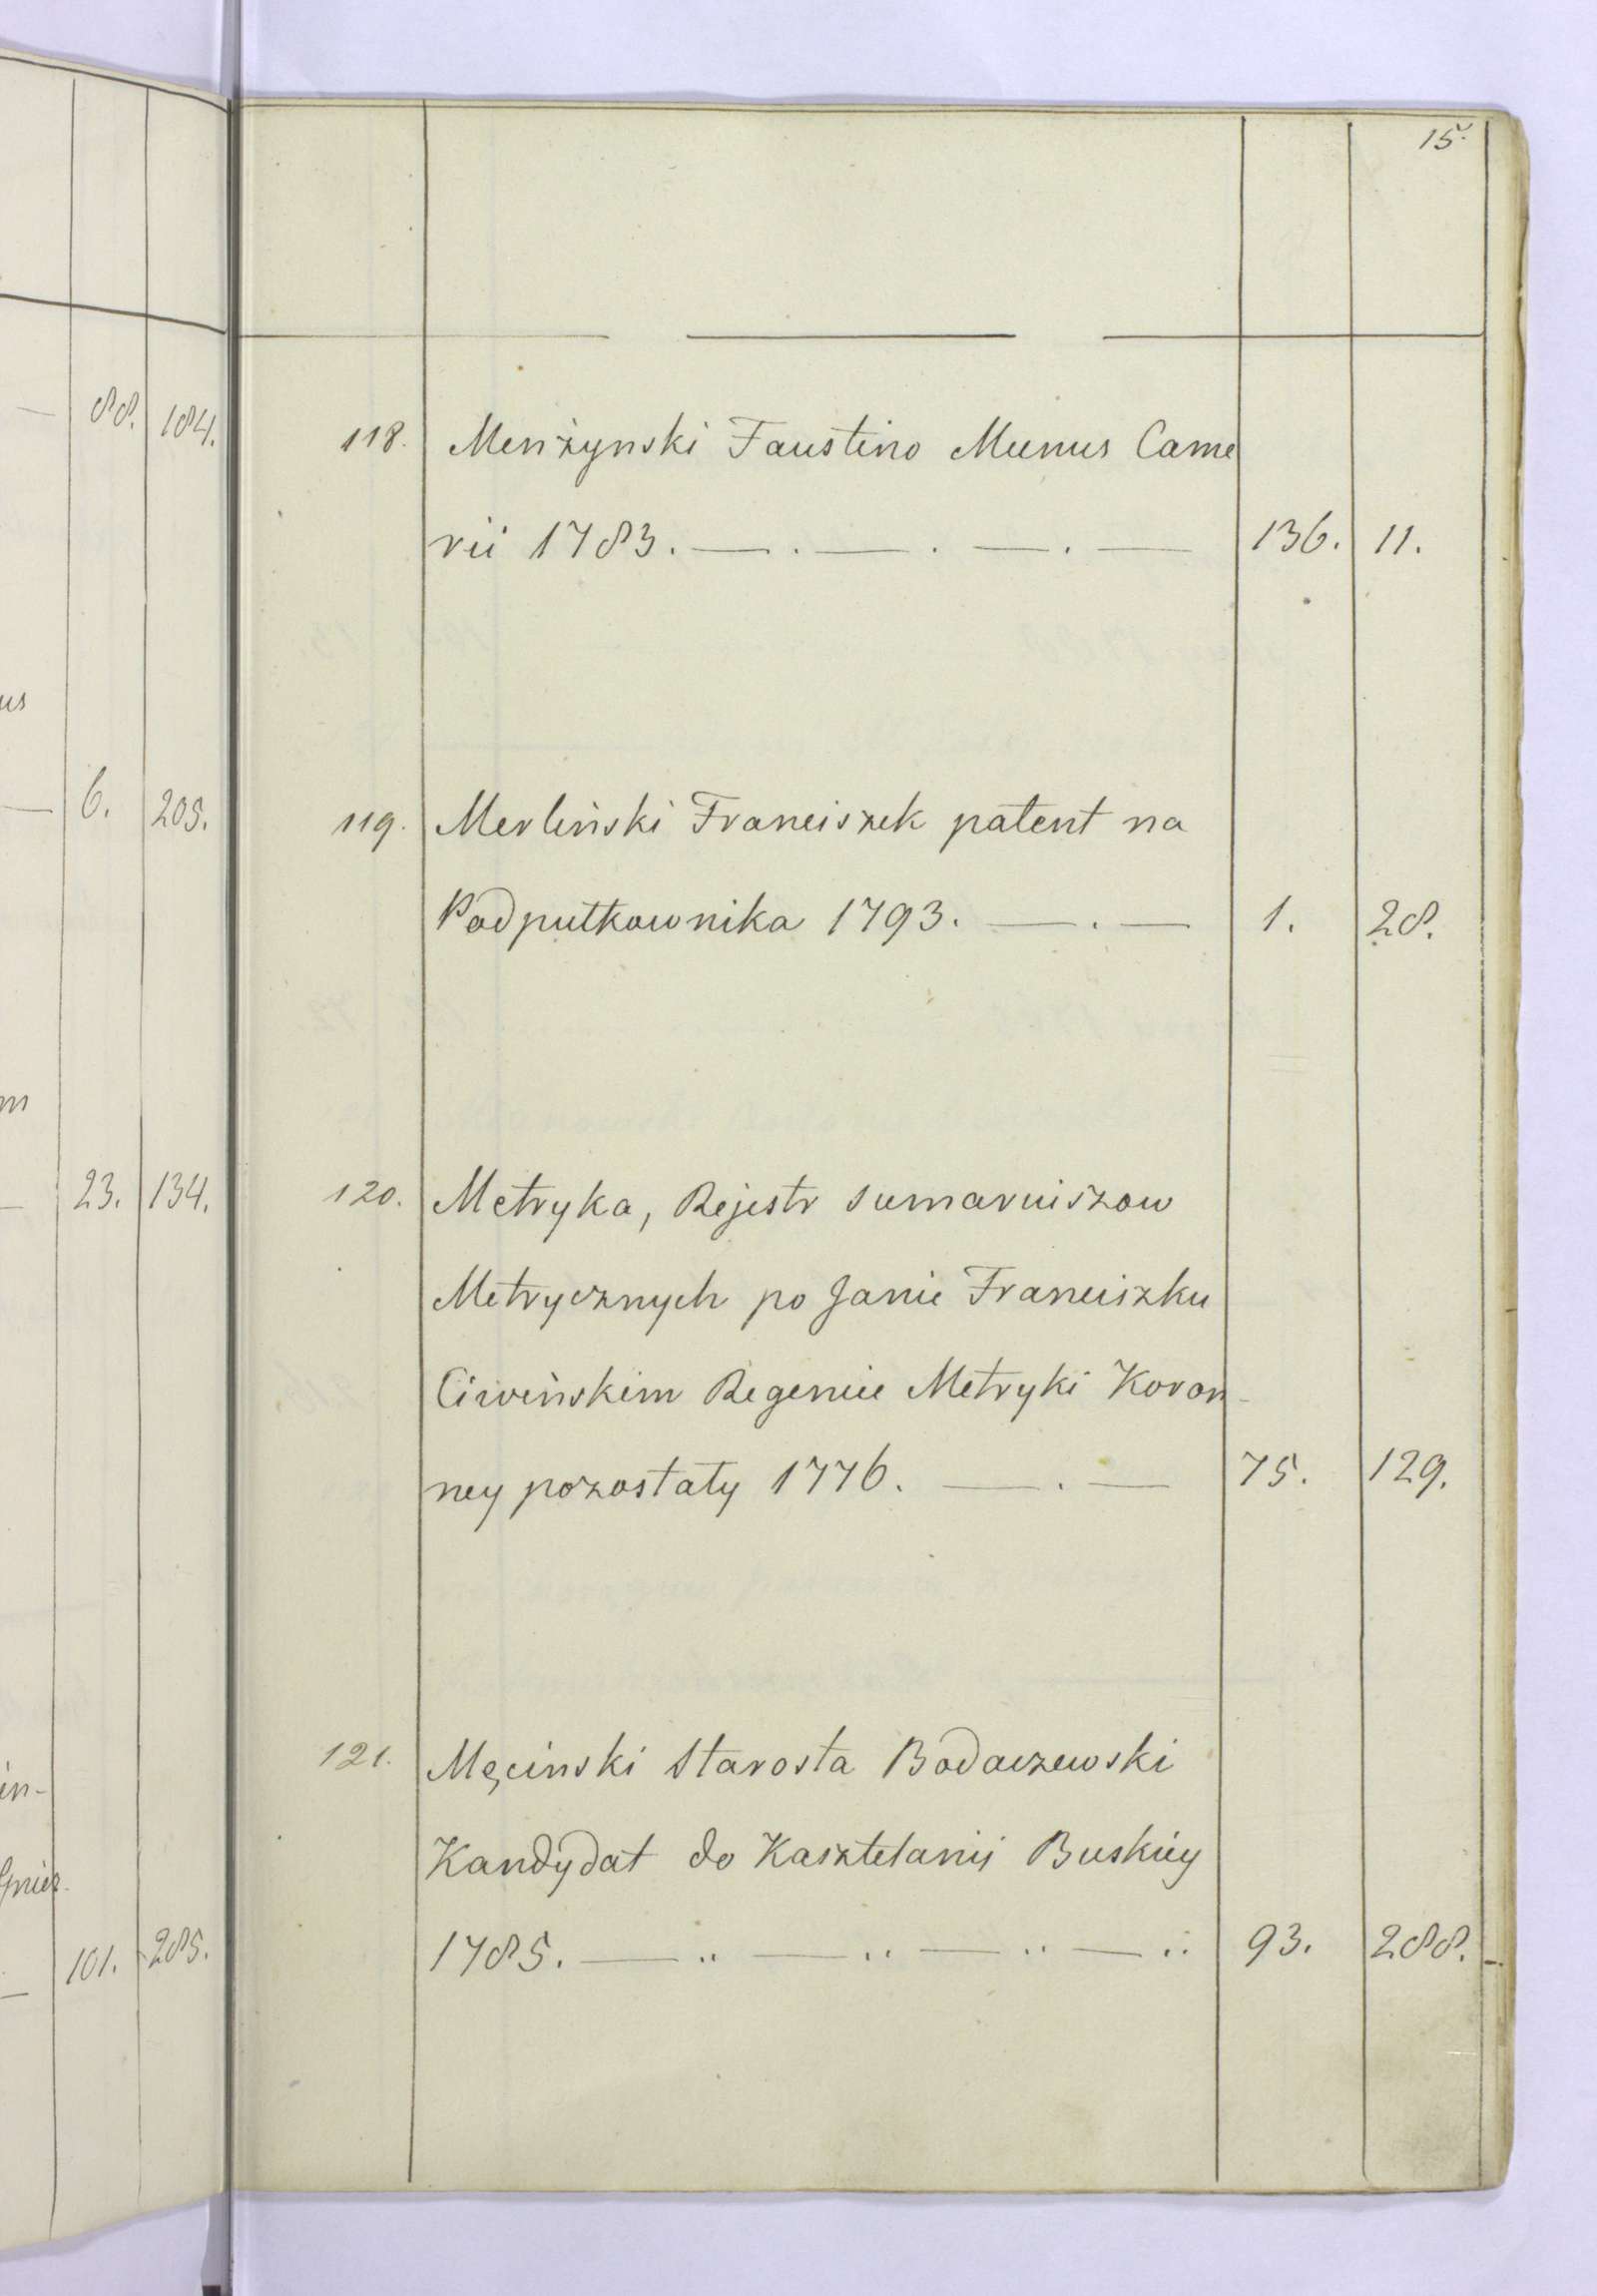 15.
88. 184.
118. Menżynski Faustino Munus Came
rii 1783. — . — . — . — 136. 11.
us
6. 205.
119. Merliński Franciszek patent na
Podpułkownika 1793. — . — 1. 28.
m
23. 134.
120. Metryka, Rejestr sumaruiszow
Metrycznych po Janie Franciszku
Ciwińskim Regencie Metryki Koron-
ney pozostały 1776. — . — 75. 129.
121. Męcinski Starosta Bodaczewski
in-
Kandydat do Kasztelanij Buskiey
1785. — .. — .. — .. — .. 93. 288.
101. 285.